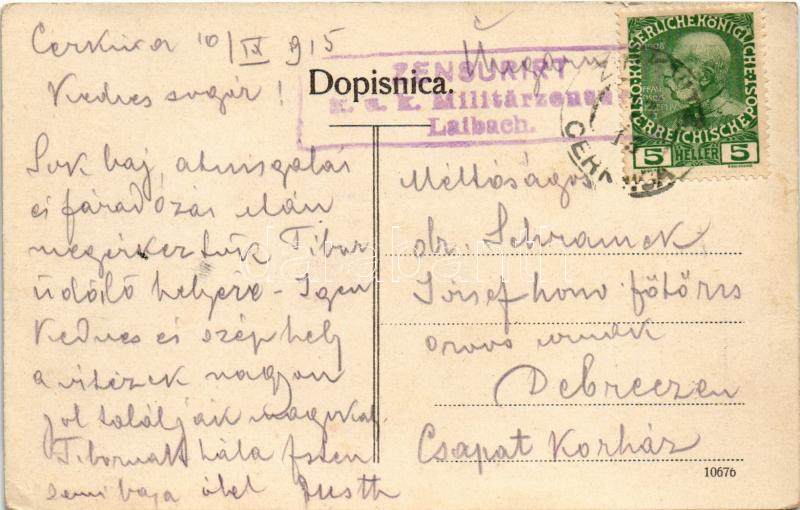 Cerknica 10/IX 915
Kedves sógor!
Sok baj, átvizsgálás
és fáradozás után
megérkeztünk Tibor
üdülő helyére - Igen
kedves és szép hely
a vitézek nagyon
jól találják magukat.
Tibornak hála Isten
semi baja ölel Justh
Dopisnica.
Ungarn
ZENSURIRT
K. u. k. Militärzensur
Laibach.
KAISERLICHE KÖNIGLICHE
ÖSTERREICHISCHE POST
5 HELLER 5
CERKNICA
Méltóságos
dr. Schramek
József honv. főtörzs
orvos urnak
Debreczen
Csapat Korház
10676
darabanth